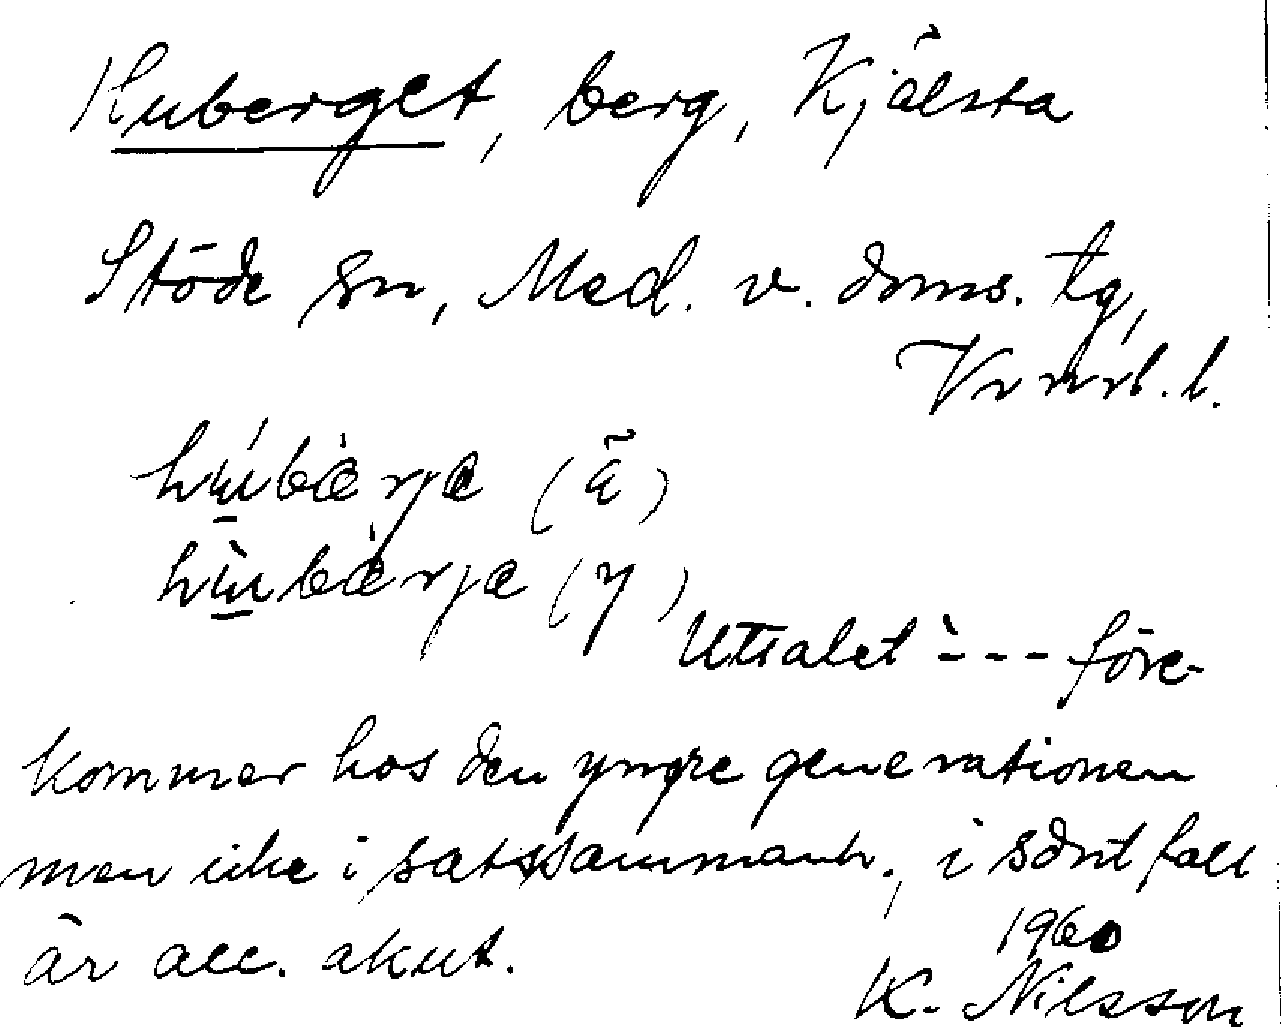 Huberget, berg, Kjälsta
Stöde sn, Med. v. doms. tg,
Vrnrl. l.
hú̱bæ̀rjæ (ä)
hù̱bæ̀rjæ (y)
Uttalet ˋ--- före-
kommer hos den yngre generationen
men icke i satssammanh., i sånt fall
är acc. akut.
1960
K. Nilsson